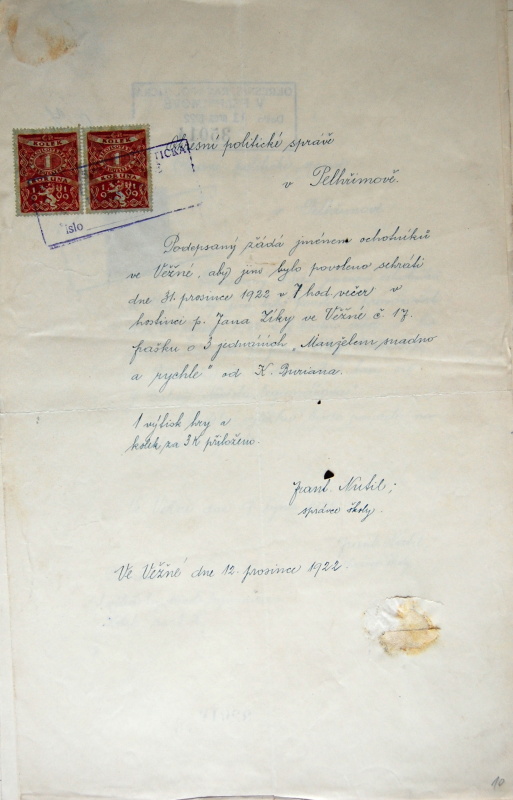 KOLEK
1
KORUNA
KOLEK
1
KORUNA
číslo
Okresní politické správě
v Pelhřimově.
Podepsaný žádá jménem ochotníků
ve Věžné, aby jim bylo povoleno sehráti
dne 31. prosince 1922 v 7 hod. večer v
hostinci p. Jana Zíky ve Věžné č. 17.
frašku o 3 jednáních „Manželem snadno
a rychle" od K. Buriana.
1 výtisk hry a
kolek za 3 K přiloženo.
Frant. Nutil,
správce školy.
Ve Věžné dne 12. prosince 1922.
10